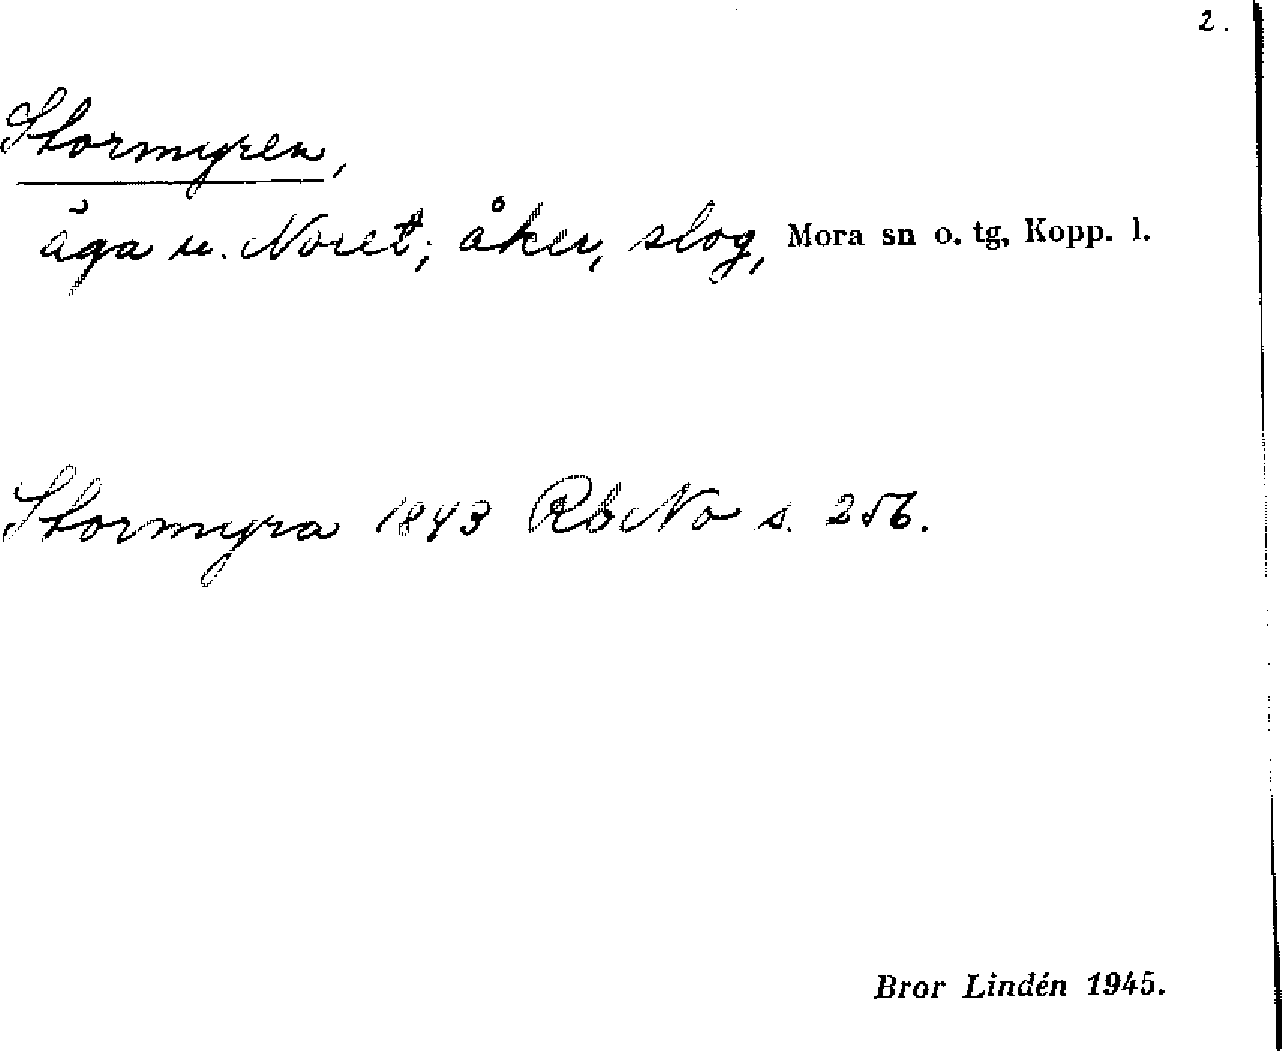 2.
Stormyren,
äga u. Noret; åker, slog, Mora sn o. tg, Kopp. l.
Stormyra 1843 RbNo s. 256.
Bror Lindén 1945.